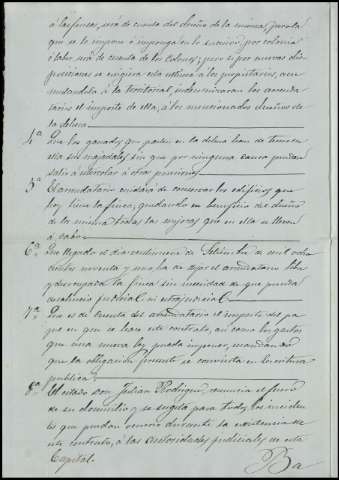 á las fincas, será de cuenta del dueño de la misma, pero la
que se le impone ó imponga en lo sucesivo, por colonia
ó labor será de cuenta de los colonos; pero si por nuevas dis-
posiciones se exigiera esta ultima á los propietarios, acu-
mulandola á la territorial, indemnizaran los arrenda-
tarios el importe de ella, á los mencionados dueños de
la dehesa
4ª Que los ganados que pasten en la dehesa han de tener en
ella sus majadales, sin que por ninguna causa puedan
salir á pernoctar á otras posesiones
5ª El arrendatario cuidará de conservar los edificios que
hoy tiene la finca, quedando en beneficio del dueño
de la misma todas las mejoras que en ella se lleven
á cabo
6ª Que llegado el dia veintinueve de Setiembre de mil ocho
cientos noventa y uno ha de dejar el arrendatario libre
y desocupada la finca sin necesidad de que preceda
desahucio judicial ni extrajudicial
7ª Que es de cuenta del arrendatario el importe del pa-
pel en que se hace este contrato, asi como los gastos
que una nueva ley pueda imponer, mandando
que la obligación presente se convierta en escritura
publica
8ª El citado don Julian Rodriguez, renuncia el fuero
de su domicilio y se sugeta para todos los inciden-
tes que puedan ocurrir durante la existencia de
este contrato, á las autoridades judiciales de esta
Capital. Ba